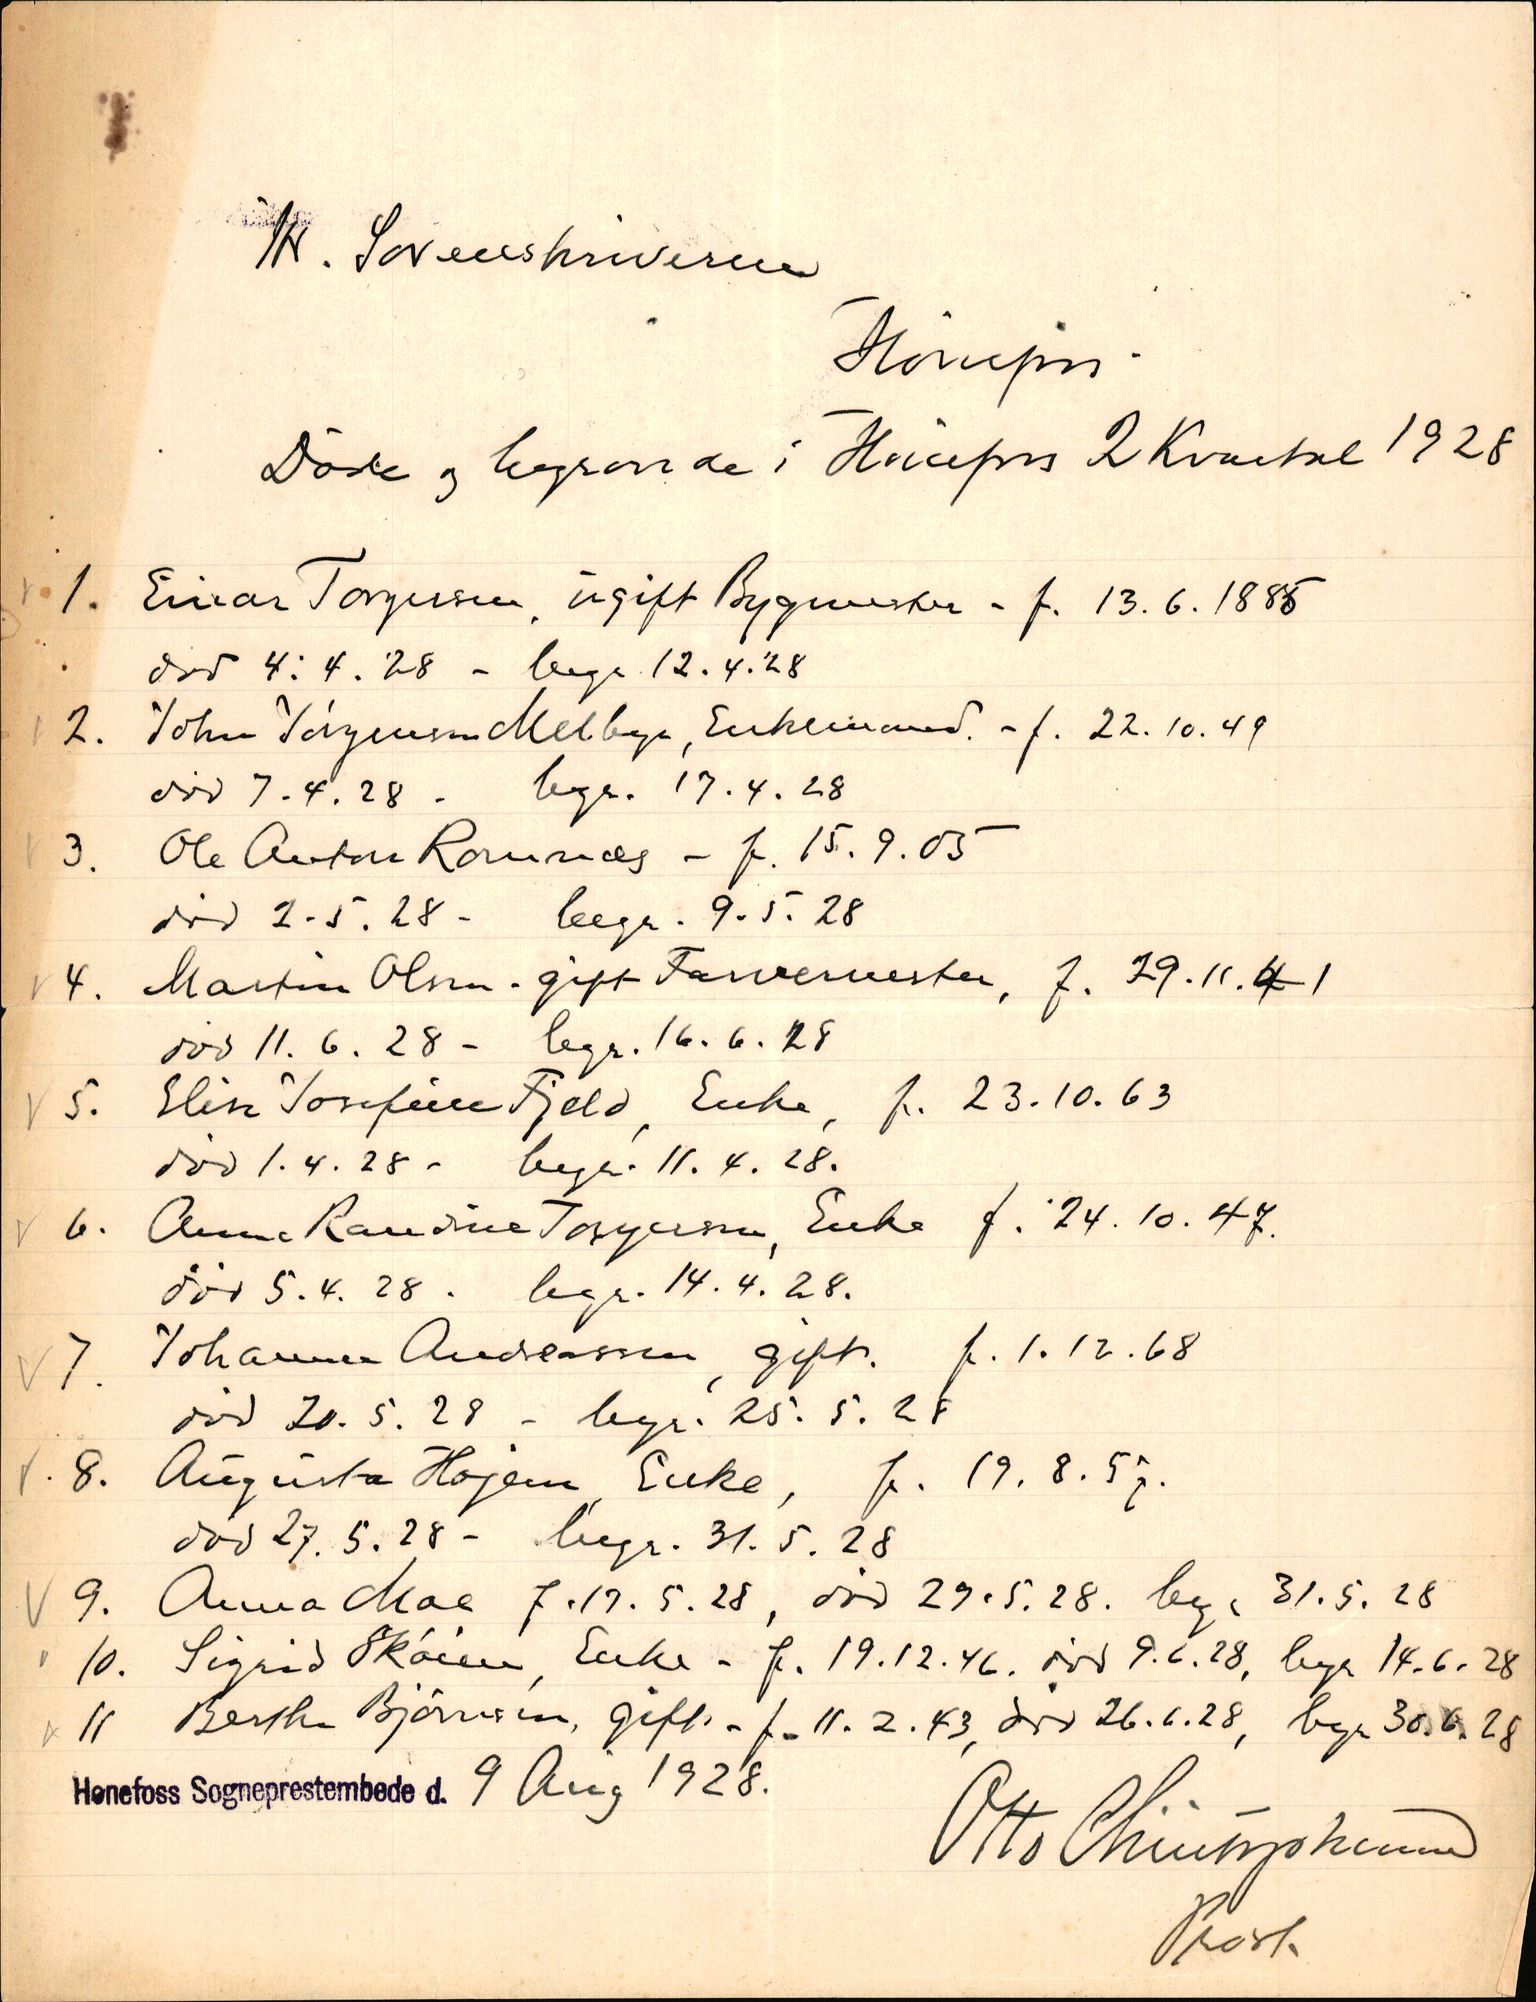 Hr. Sorenskriveren
Hönefoss.
Döde og begravede i Hönefoss 2 Kvartal 1928
1. Einar Torgersen, ugift Bygmester - f. 13.6.1885
död 4.4.28 - begr 12.4.28
2. John Jörgensen Melbye, Enkemand. - f. 22.10.49
död 7.4.28 - begr. 17.4.28
3. Ole Anton Romnæs - f. 15.9.05
död 2.5.28 - begr. 9.5.28
4. Martin Olsen - gift Farvermester, f. 29.11.41
död 11.6.28 - begr. 16.6.28
5. Elise Josefine Fjeld, Enke, f. 23.10.63
död 1.4.28 - begr. 11.4.28.
6. Anne Randine Torgersen, Enke f. 24.10.47.
död 5.4.28. begr. 14.4.28.
7. Johanne Andreassen, gift. f. 1.12.68
död 20.5.28 - begr. 25.5.28
8. Augusta Hojem, Enke, f. 19.8.57.
död 27.5.28 - begr. 31.5.28
9. Anna Moe f. 17.5.28, död 29.5.28. begr 31.5.28
10. Sigrid Sköien, Enke - f. 19.12.46. död 9.6.28, begr 14.6.28
11 Berthe Björnsen, gift. - f. 11.2.43, död 26.6.28, begr 30.6.28
Hønefoss Sogneprestembede d. 9 Aug 1928.
Otto Christophersen
Prost.